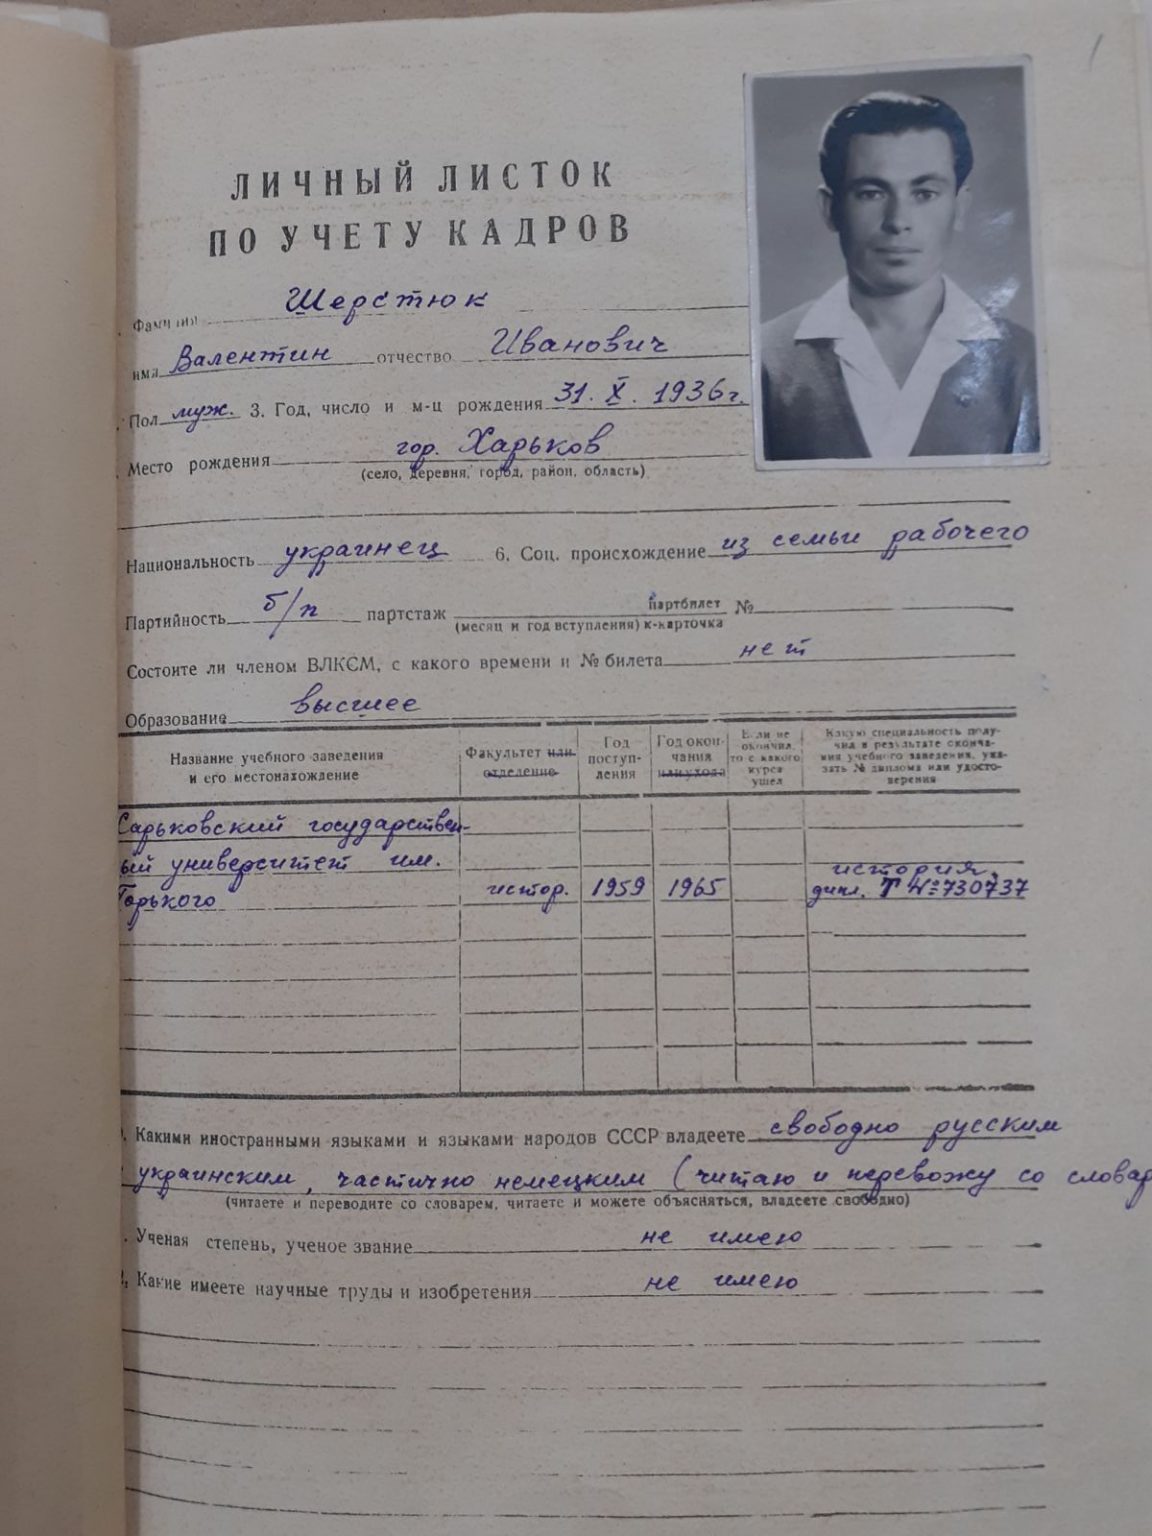 ЛИЧНЫЙ ЛИСТОК
ПО УЧЕТУ КАДРОВ
Фамилия Шерстюк
имя Валентин отчество Иванович
Пол муж. 3. Год, число и м-ц рождения 31. X. 1936г.
Место рождения гор. Харьков
(село, деревня, город, район, область)
Национальность украинец 6. Соц. происхождение из семьи рабочего
Партийность б/п партстаж партбилет №
(месяц и год вступления) к-карточка
Состоите ли членом ВЛКСМ, с какого времени и № билета нет
Образование высшее
Название учебного заведения и его местонахождение
Факультет или отделение
Год поступ- ления
Год окон- чания или ухода
Если не окончил, то с какого курса ушел
Какую специальность полу- чил в результате оконча- ния учебного заведения, ука- зать № диплома или удосто- верения
Харьковский государствен-
ый университет им.
Горького истор. 1959 1965 история, дипл. Т №730737
Какими иностранными языками и языками народов СССР владеете свободно русским
украинским, частично немецким (читаю и перевожу со словар
(читаете и переводите со словарем, читаете и можете объясняться, владеете свободно)
Ученая степень, ученое звание не имею
Какие имеете научные труды и изобретения не имею